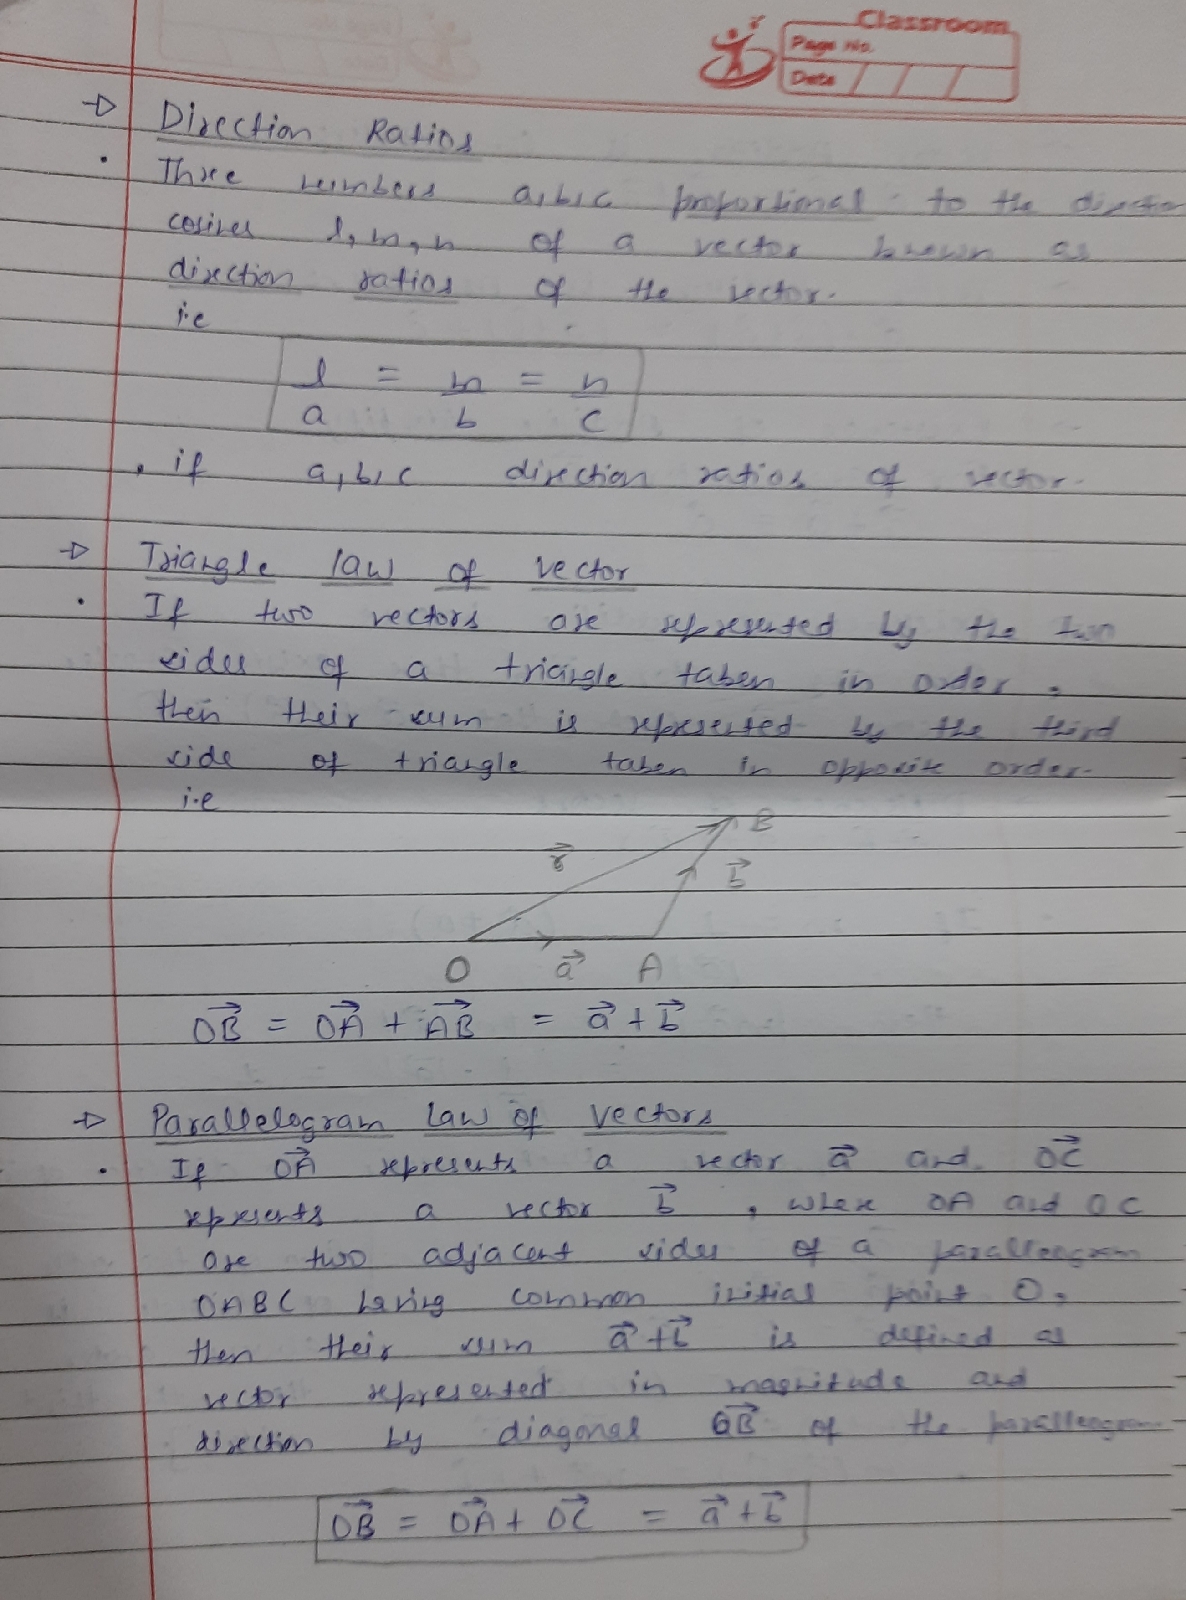 Classroom
Page No.
Date
→ Direction Ratios
• Three numbers a, b, c proportional to the direction
cosines l, m, n of a vector known as
direction ratios of the vector.
i.e
l/a = m/b = n/c
, if a, b, c direction ratios of vector.
→ Triangle law of vector
• If two vectors are represented by the two
sides of a triangle taken in order,
then their sum is represented by the third
side of triangle taken in opposite order.
i.e
B
r⃗
b⃗
O a⃗ A
OB⃗ = OA⃗ + AB⃗ = a⃗ + b⃗
→ Parallelogram Law of Vectors
• If OA⃗ represents a vector a⃗ and OC⃗
represents a vector b⃗, where OA and OC
are two adjacent sides of a paralleogram
OABC having common initial point O,
then their sum a⃗ + b⃗ is defined as
vector represented in magnitude and
direction by diagonal OB⃗ of the paralleogram.
OB⃗ = OA⃗ + OC⃗ = a⃗ + b⃗